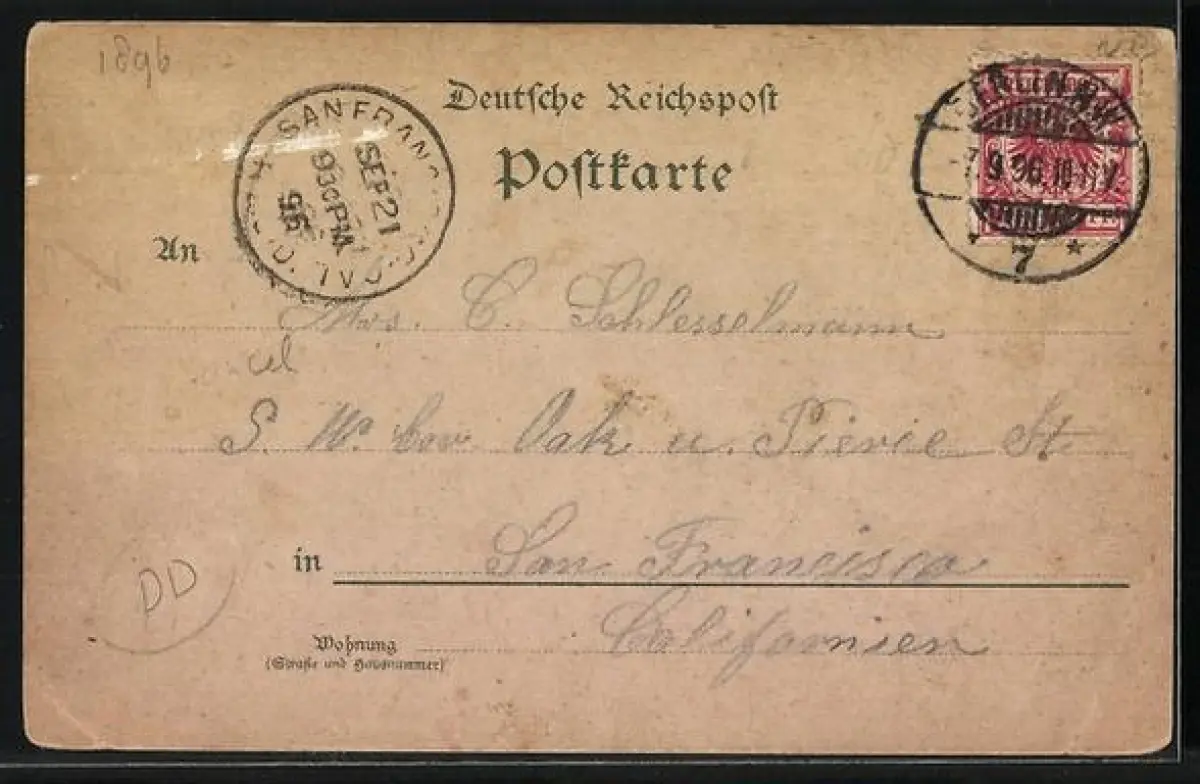 1896
Deutsche Reichspost
Postkarte
SAN FRANCISCO, CAL.
SEP 21
930 PM
96
BERLIN N.W.
9 96 10-11 V.
7 *
An
Mrs. C. Schlesselmann
S. W. Cor Oak u. Pierce St.
in San Francisco
Californien
Wohnung
(Straße und Hausnummer)
DD